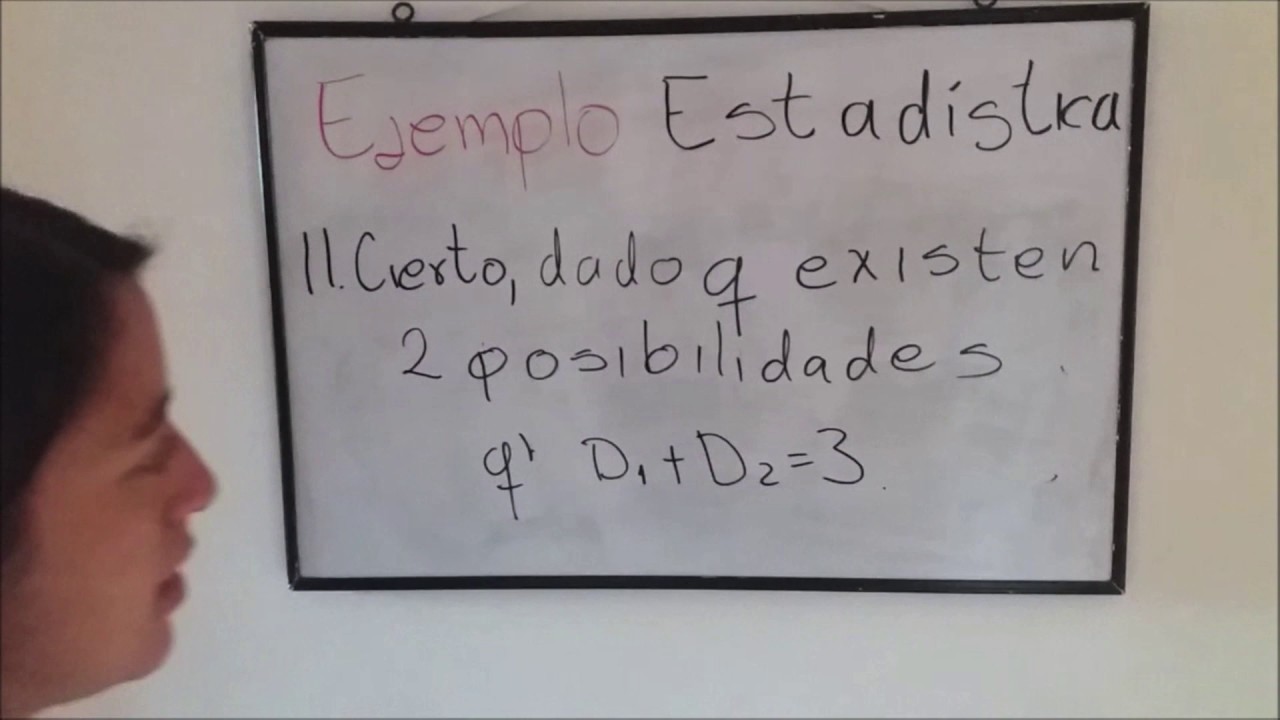 Ejemplo Estadística
II. Cierto, dado q existen
2 posibilidades
q' D₁+D₂=3